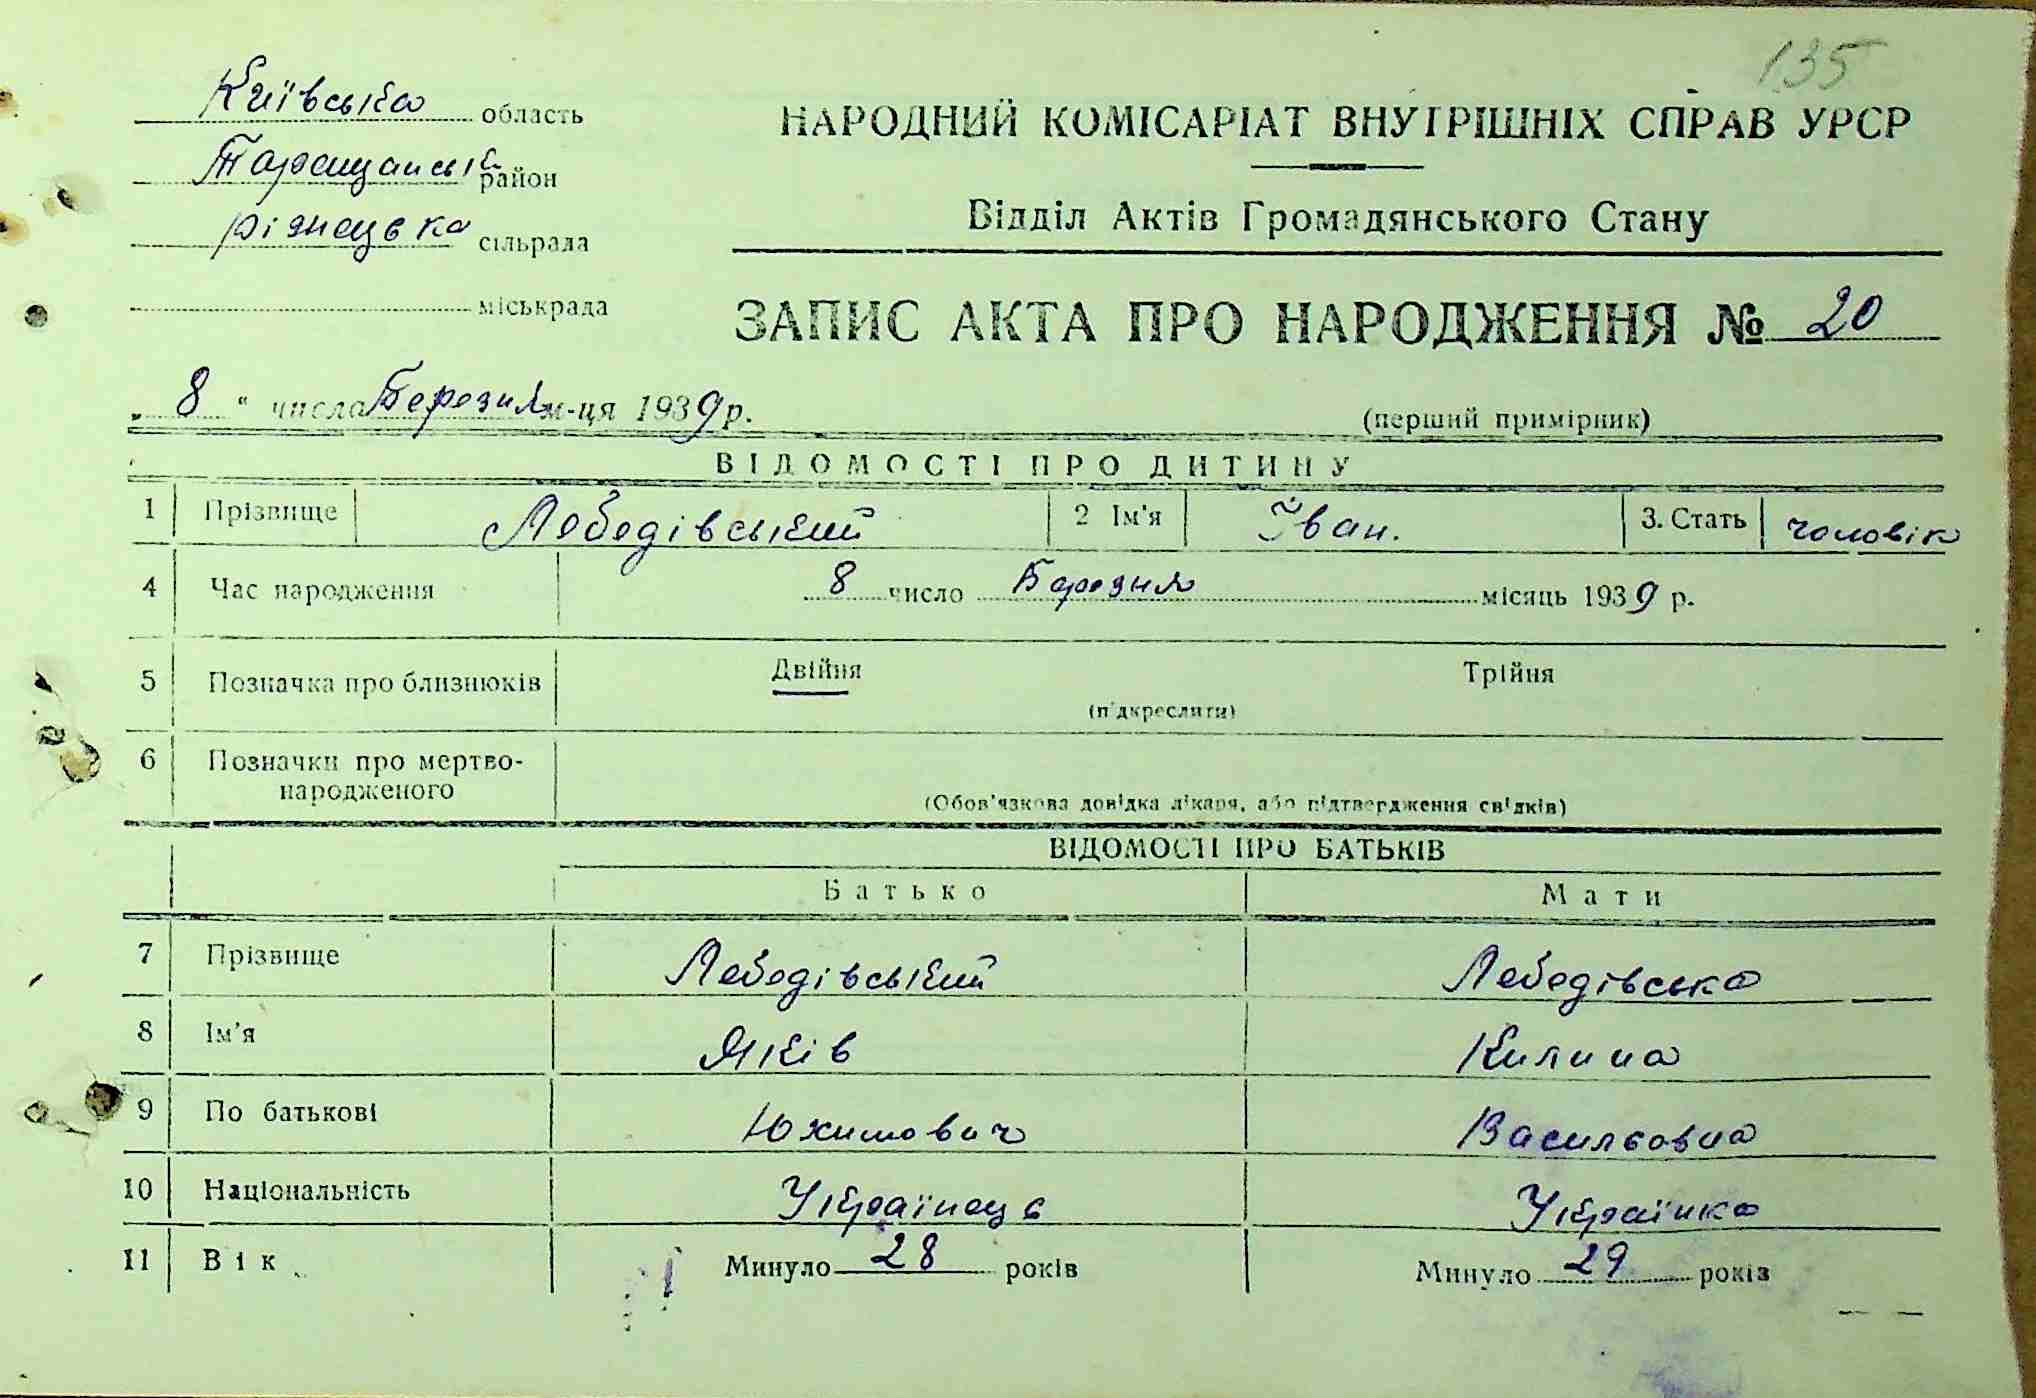 135
Київська область
Таращанськ. район
Різнецька сільрада
міськрада
НАРОДНИЙ КОМІСАРІАТ ВНУТРІШНІХ СПРАВ УРСР
Відділ Актів Громадянського Стану
ЗАПИС АКТА ПРО НАРОДЖЕННЯ № 20
„ 8 “ числа Березня м-ця 1939 р.
(перший примірник)
ВІДОМОСТІ ПРО ДИТИНУ
1 Прізвище Лебедівський 2 Ім'я Іван. 3. Стать чоловік
4 Час народження 8 число Березня місяць 1939 р.
5 Позначка про близнюків Двійня Трійня
(підкреслити)
6 Позначки про мертво-
народженого
(Обов'язкова довідка лікаря, або підтвердження свідків)
ВІДОМОСТІ ПРО БАТЬКІВ
Батько Мати
7 Прізвище Лебедівський Лебедівська
8 Ім'я Яків Килина
9 По батькові Юхимович Васильовна
10 Національність Українець Українка
11 Вік Минуло 28 років Минуло 29 років